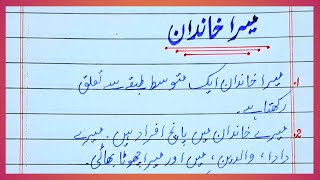 میرا خاندان
1. میرا خاندان ایک متوسط طبقے سے تعلق
رکھتا ہے۔
2. میرے خاندان میں پانچ افراد ہیں۔ میرے
دادا، والدین، میں اور میرا چھوٹا بھائی۔